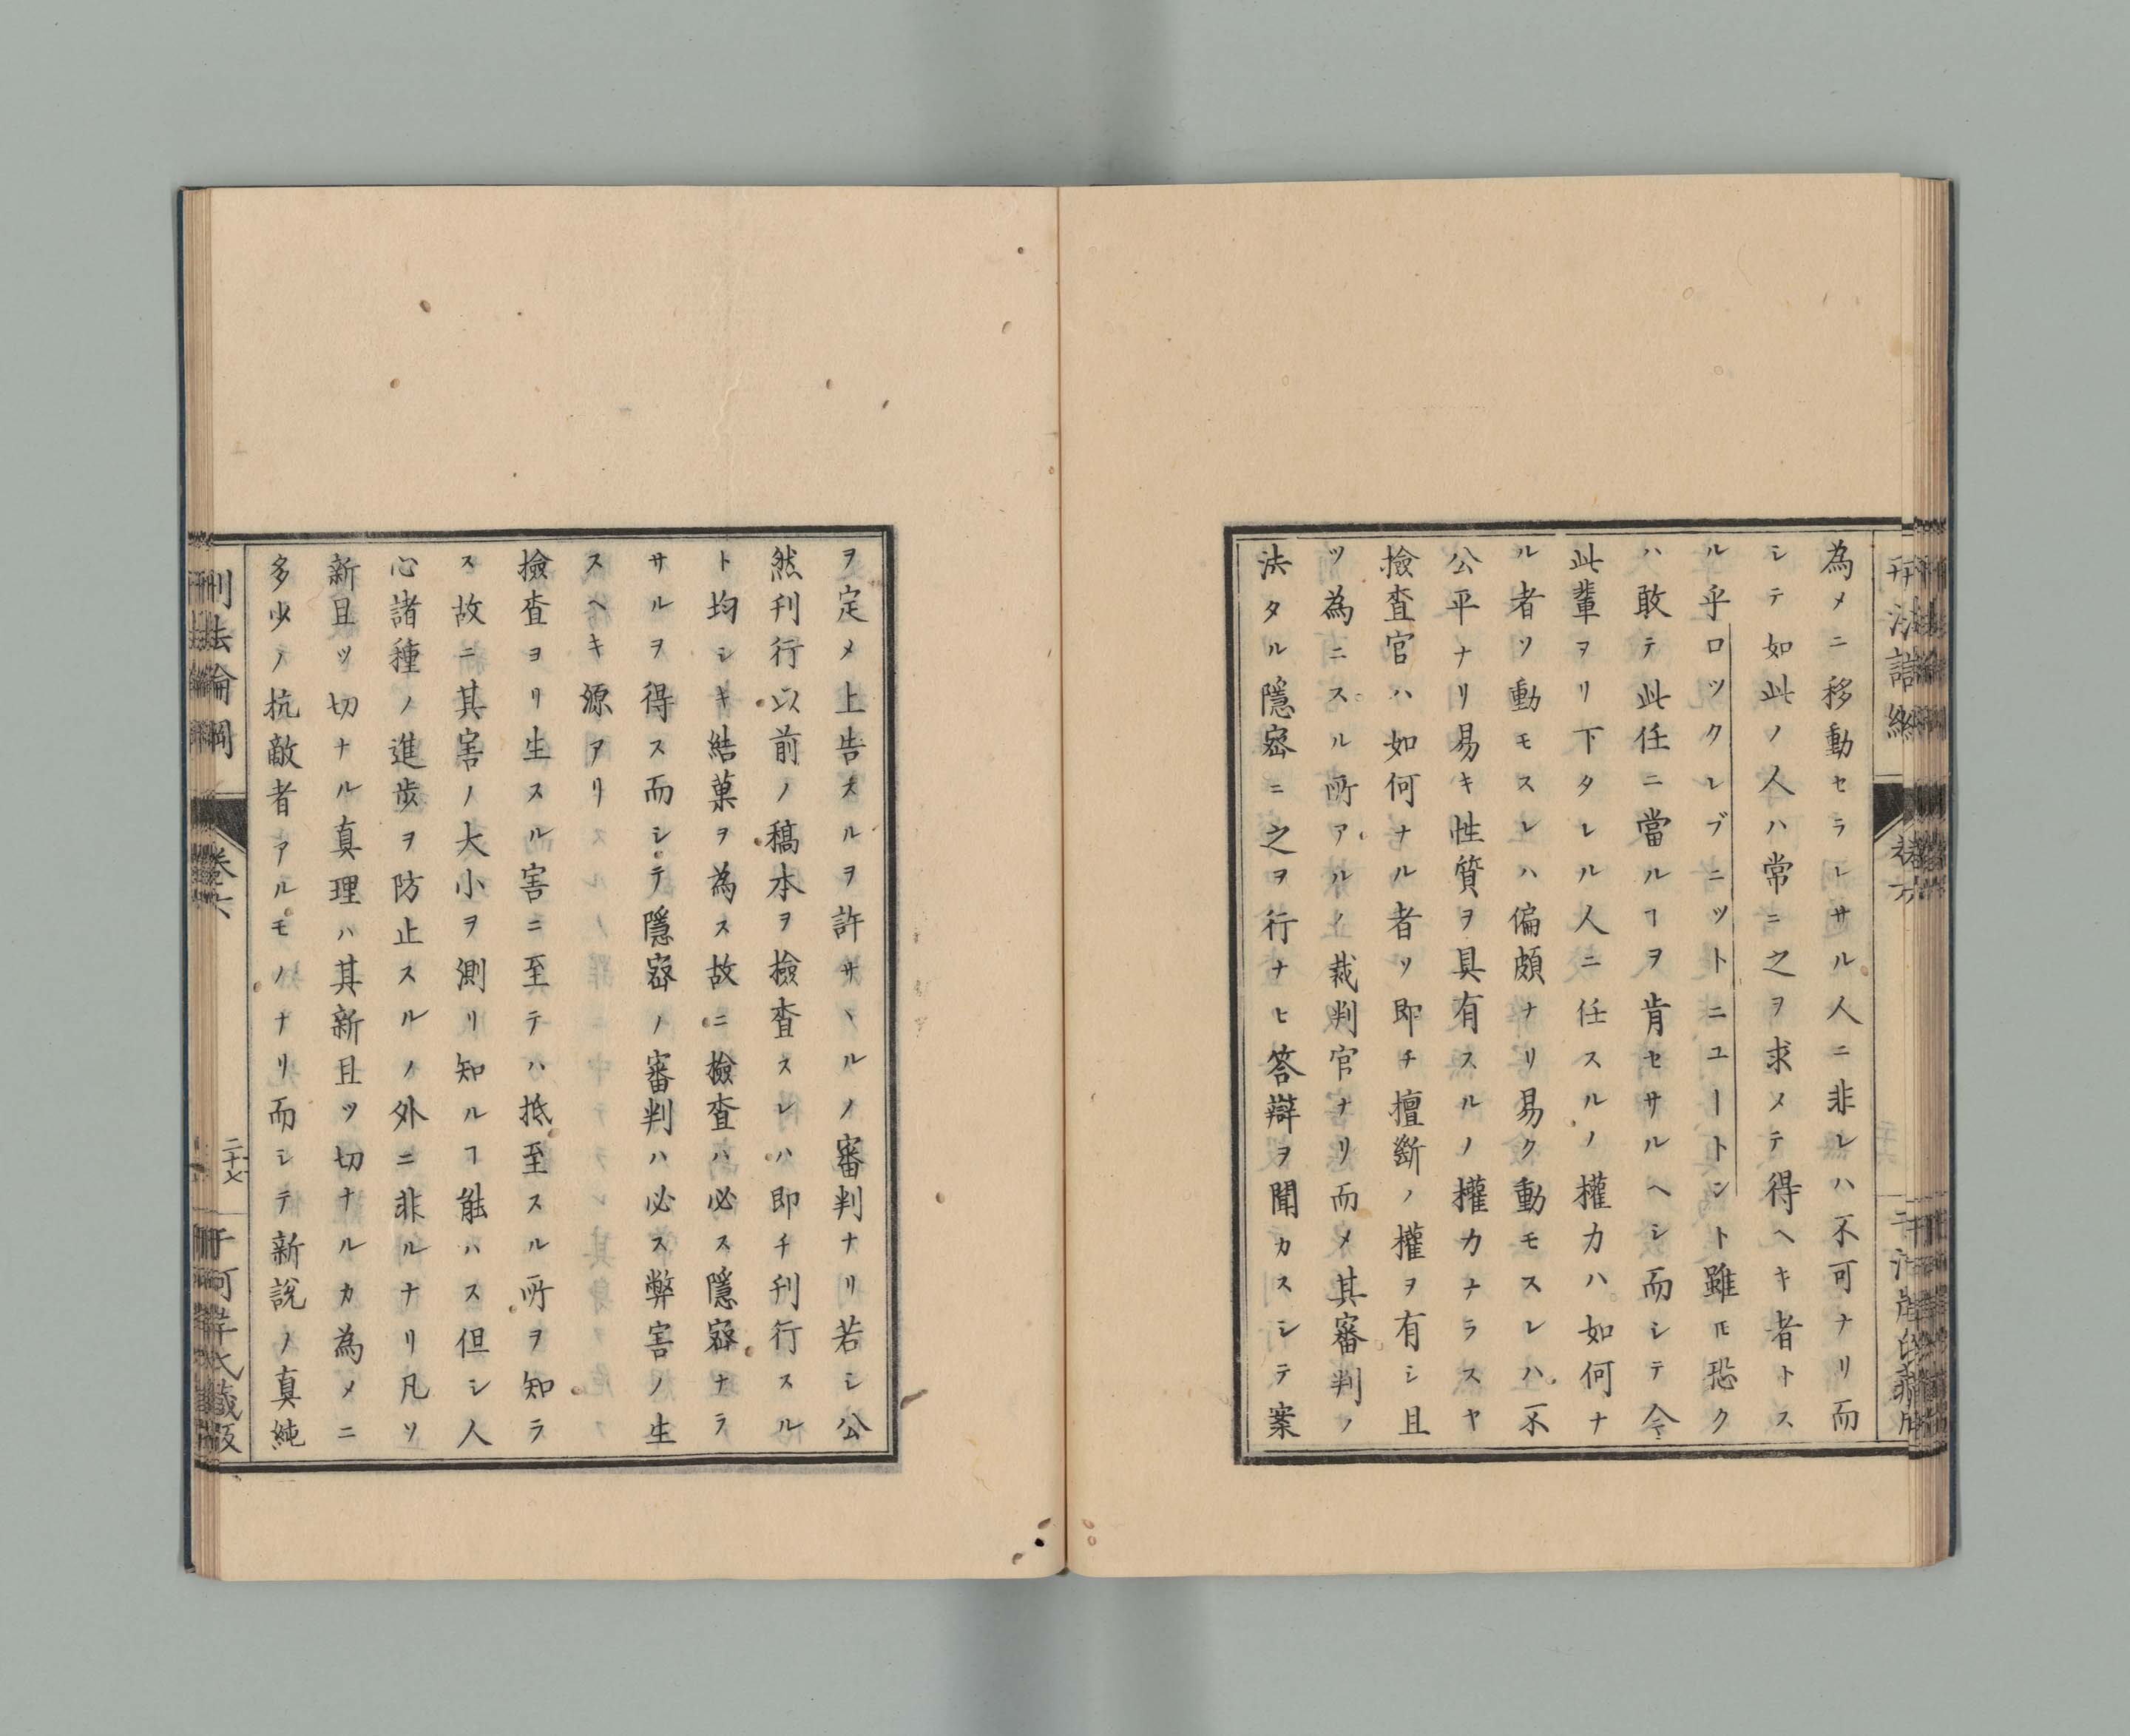 為メニ移動セラレサル人ニ非レハ不可ナリ而
シテ如此ノ人ハ常ニ之ヲ求メテ得ヘキ者トス
ル乎ロツクレブニツトニユートント雖𪜈恐ク
ハ敢テ此任ニ當ルヿヲ肯セサルヘシ而シテ今
此輩ヲリ下タレル人ニ任スルノ權力ハ如何ナ
ル者ソ動モスレハ偏頗ナリ易ク動モスレハ不
公平ナリ易キ性質ヲ具有スルノ權力ナラスヤ
撿査官ハ如何ナル者ソ即チ擅斷ノ權ヲ有シ且
ツ為ニスル所アルノ裁判官ナリ而メ其審判ノ
法タル隱密ニ之ヲ行ナヒ答辯ヲ聞カスシテ案
ヲ定メ上告スルヲ許サヽルノ審判ナリ若シ公
然刊行以前ノ稿本ヲ撿査スレハ即チ刊行スル
ト均シキ結菓ヲ為ス故ニ撿査ハ必ス隱密ナラ
サルヲ得ス而シテ隱密ノ審判ハ必ス弊害ノ生
スヘキ源アリ
撿査ヨリ生スル害ニ至テハ抵至スル所ヲ知ラ
ス故ニ其害ノ大小ヲ測リ知ルヿ能ハス但シ人
心諸種ノ進歩ヲ防止スルノ外ニ非ルナリ凡ソ
新且ツ切ナル真理ハ其新且ツ切ナルカ為メニ
多少ノ抗敵者アルモノナリ而シテ新說ノ真純
刑法論綱
卷六
二十七